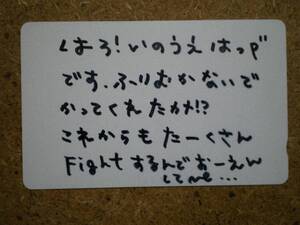 はろ!いのうえ
です.ふりおかないで
かってくれたカメ!?
これからもたーくさん
Fightするんでおーえん
してme...